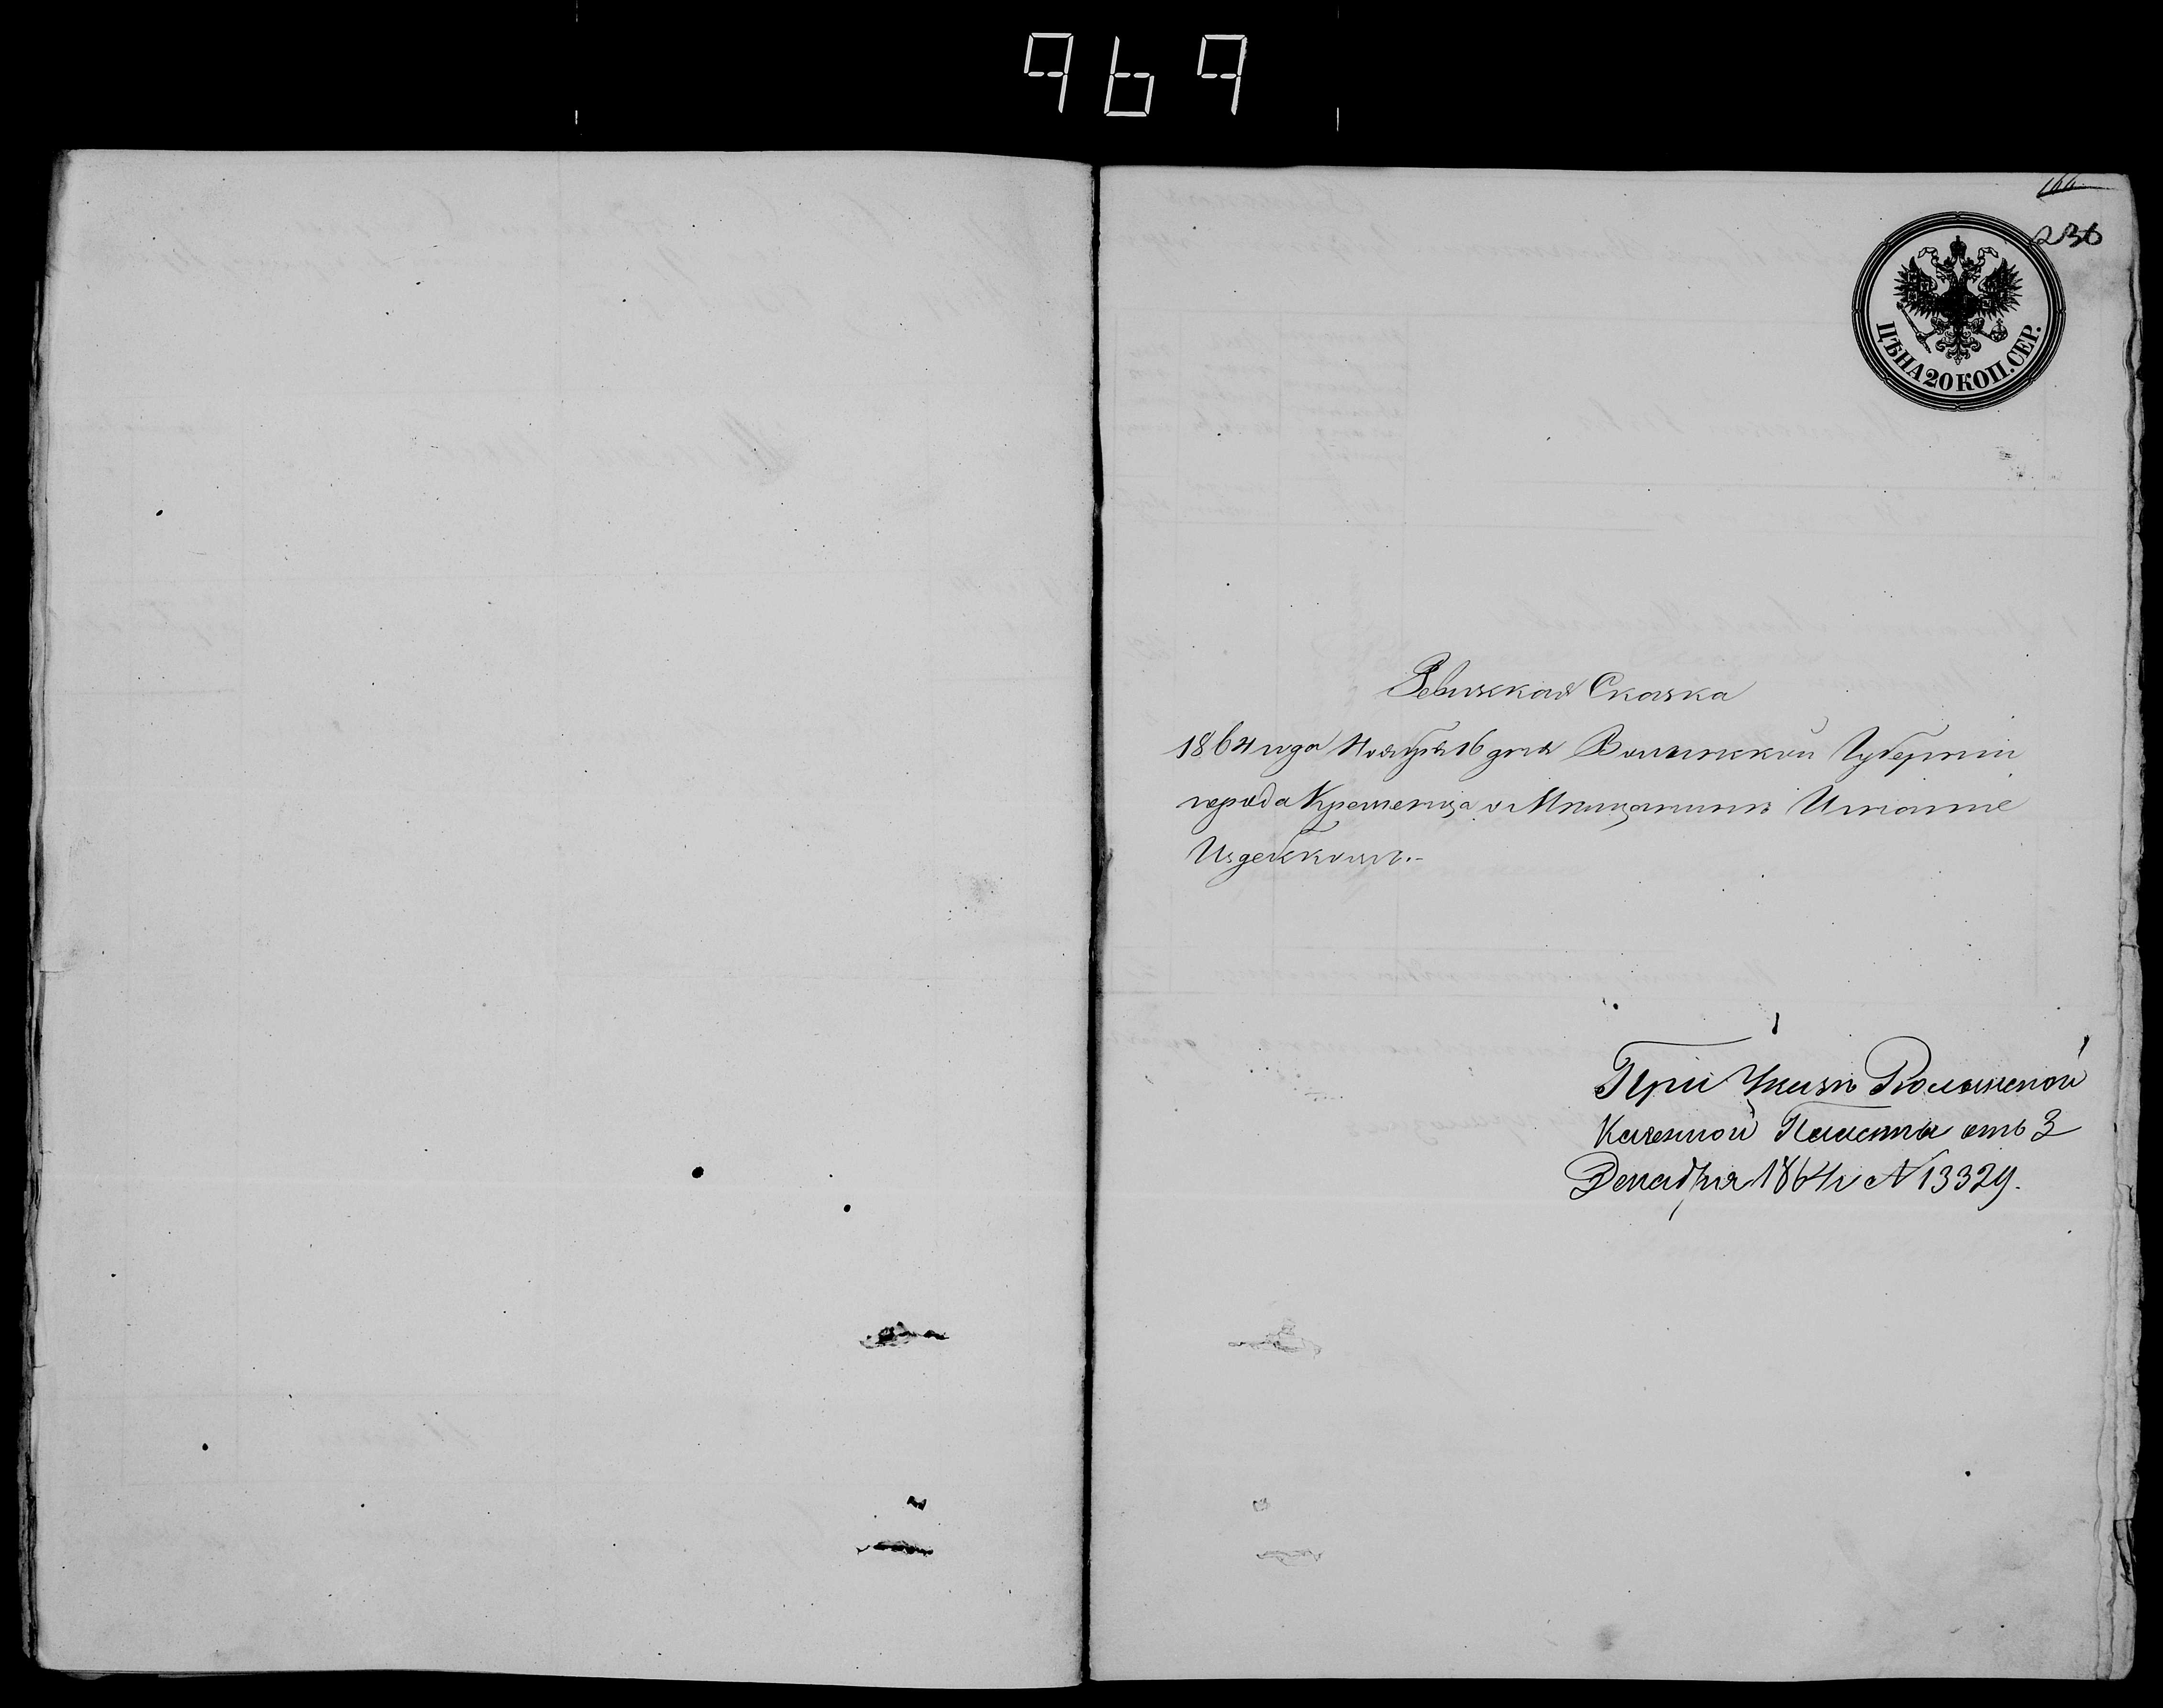 969
166
236
ЦѢНА 20 КОП. СЕР.
Ревизская Сказка
1864 года Ноября 16 дня Волынской Губерніи
города Кременца о Мѣщанинѣ
При Указѣ Волынской
Казенной Палаты отъ 3
Декабря 1864 г. N 13329.